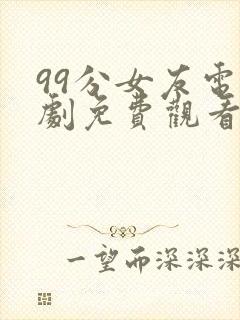 99分女友電
劇免費觀看
一望而深深深